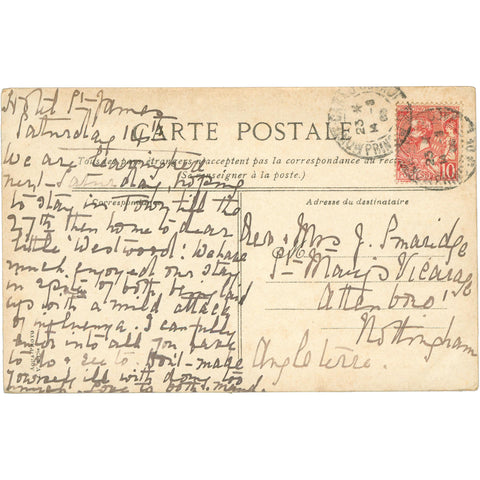 Hotel St James
Saturday 14th
CARTE POSTALE
Tous les pays étrangers n'acceptent pas la correspondance au recto
(Se renseigner à la poste.)
Correspondance
Adresse du destinataire
We are leaving here
next Saturday hoping
to stay in Town till the
27th then home to dear
little Westwood. We have
much enjoyed our stay
in spite of both being laid
up with a mild attack
of influenza. I can fully
enter into all you have
to do & see to. Don't made
yourself ill with doing too
much. Love to both
Mrs J. Smaridge
St Mary's Vicarage
Attenboro'
Nottingham
Angleterre
10